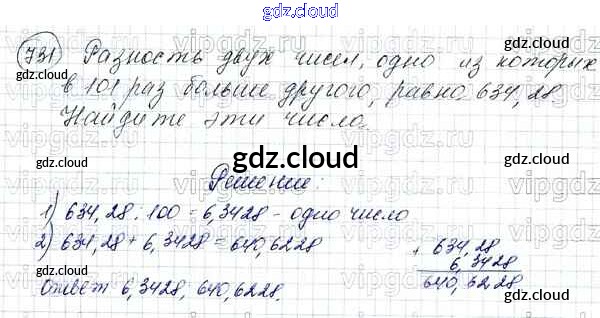 gdz.cloud
731 Разность двух чисел, одно из которых
в 101 раз больше другого, равна 634,28.
Найдите эти числа.
gdz.cloud
Решение:
1) 634,28 : 100 = 6,3428 - одно число
2) 634,28 + 6,3428 = 640,6228
+ 634,28
6,3428
640,6228
Ответ 6,3428, 640,6228.
gdz.cloud